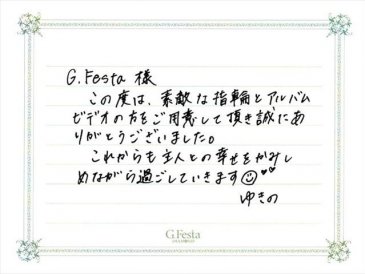 G.Festa 様
この度は、素敵な指輪とアルバム
ビデオの方をご用意して頂き誠にあ
りがとうございました。
これからも主人との幸せをかみし
めながら過ごしていきます
ゆきの
G.Festa